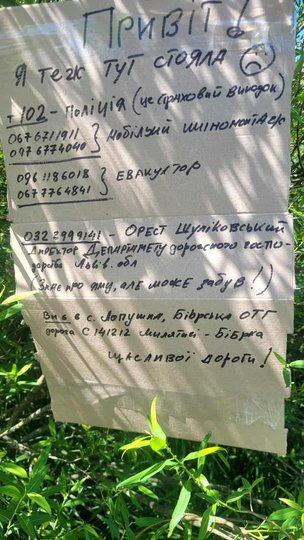 Привіт!
Я теж тут стояла
т 102 - Поліція (це страховий випадок)
067 6711911 } Мобільний шиномонтаж
097 6774040
096 1186018 } Евакуатор
067 7764841
032 2999141 - Орест Шуліковський
Директор Департаменту дорожнього госпо-
дарства Львів. обл
(Знає про яму, але може забув!)
Ви є в с. Лопушна, Бібрська ОТГ
дорога С141212 Милятичі - Бібрка
Щасливої дороги!